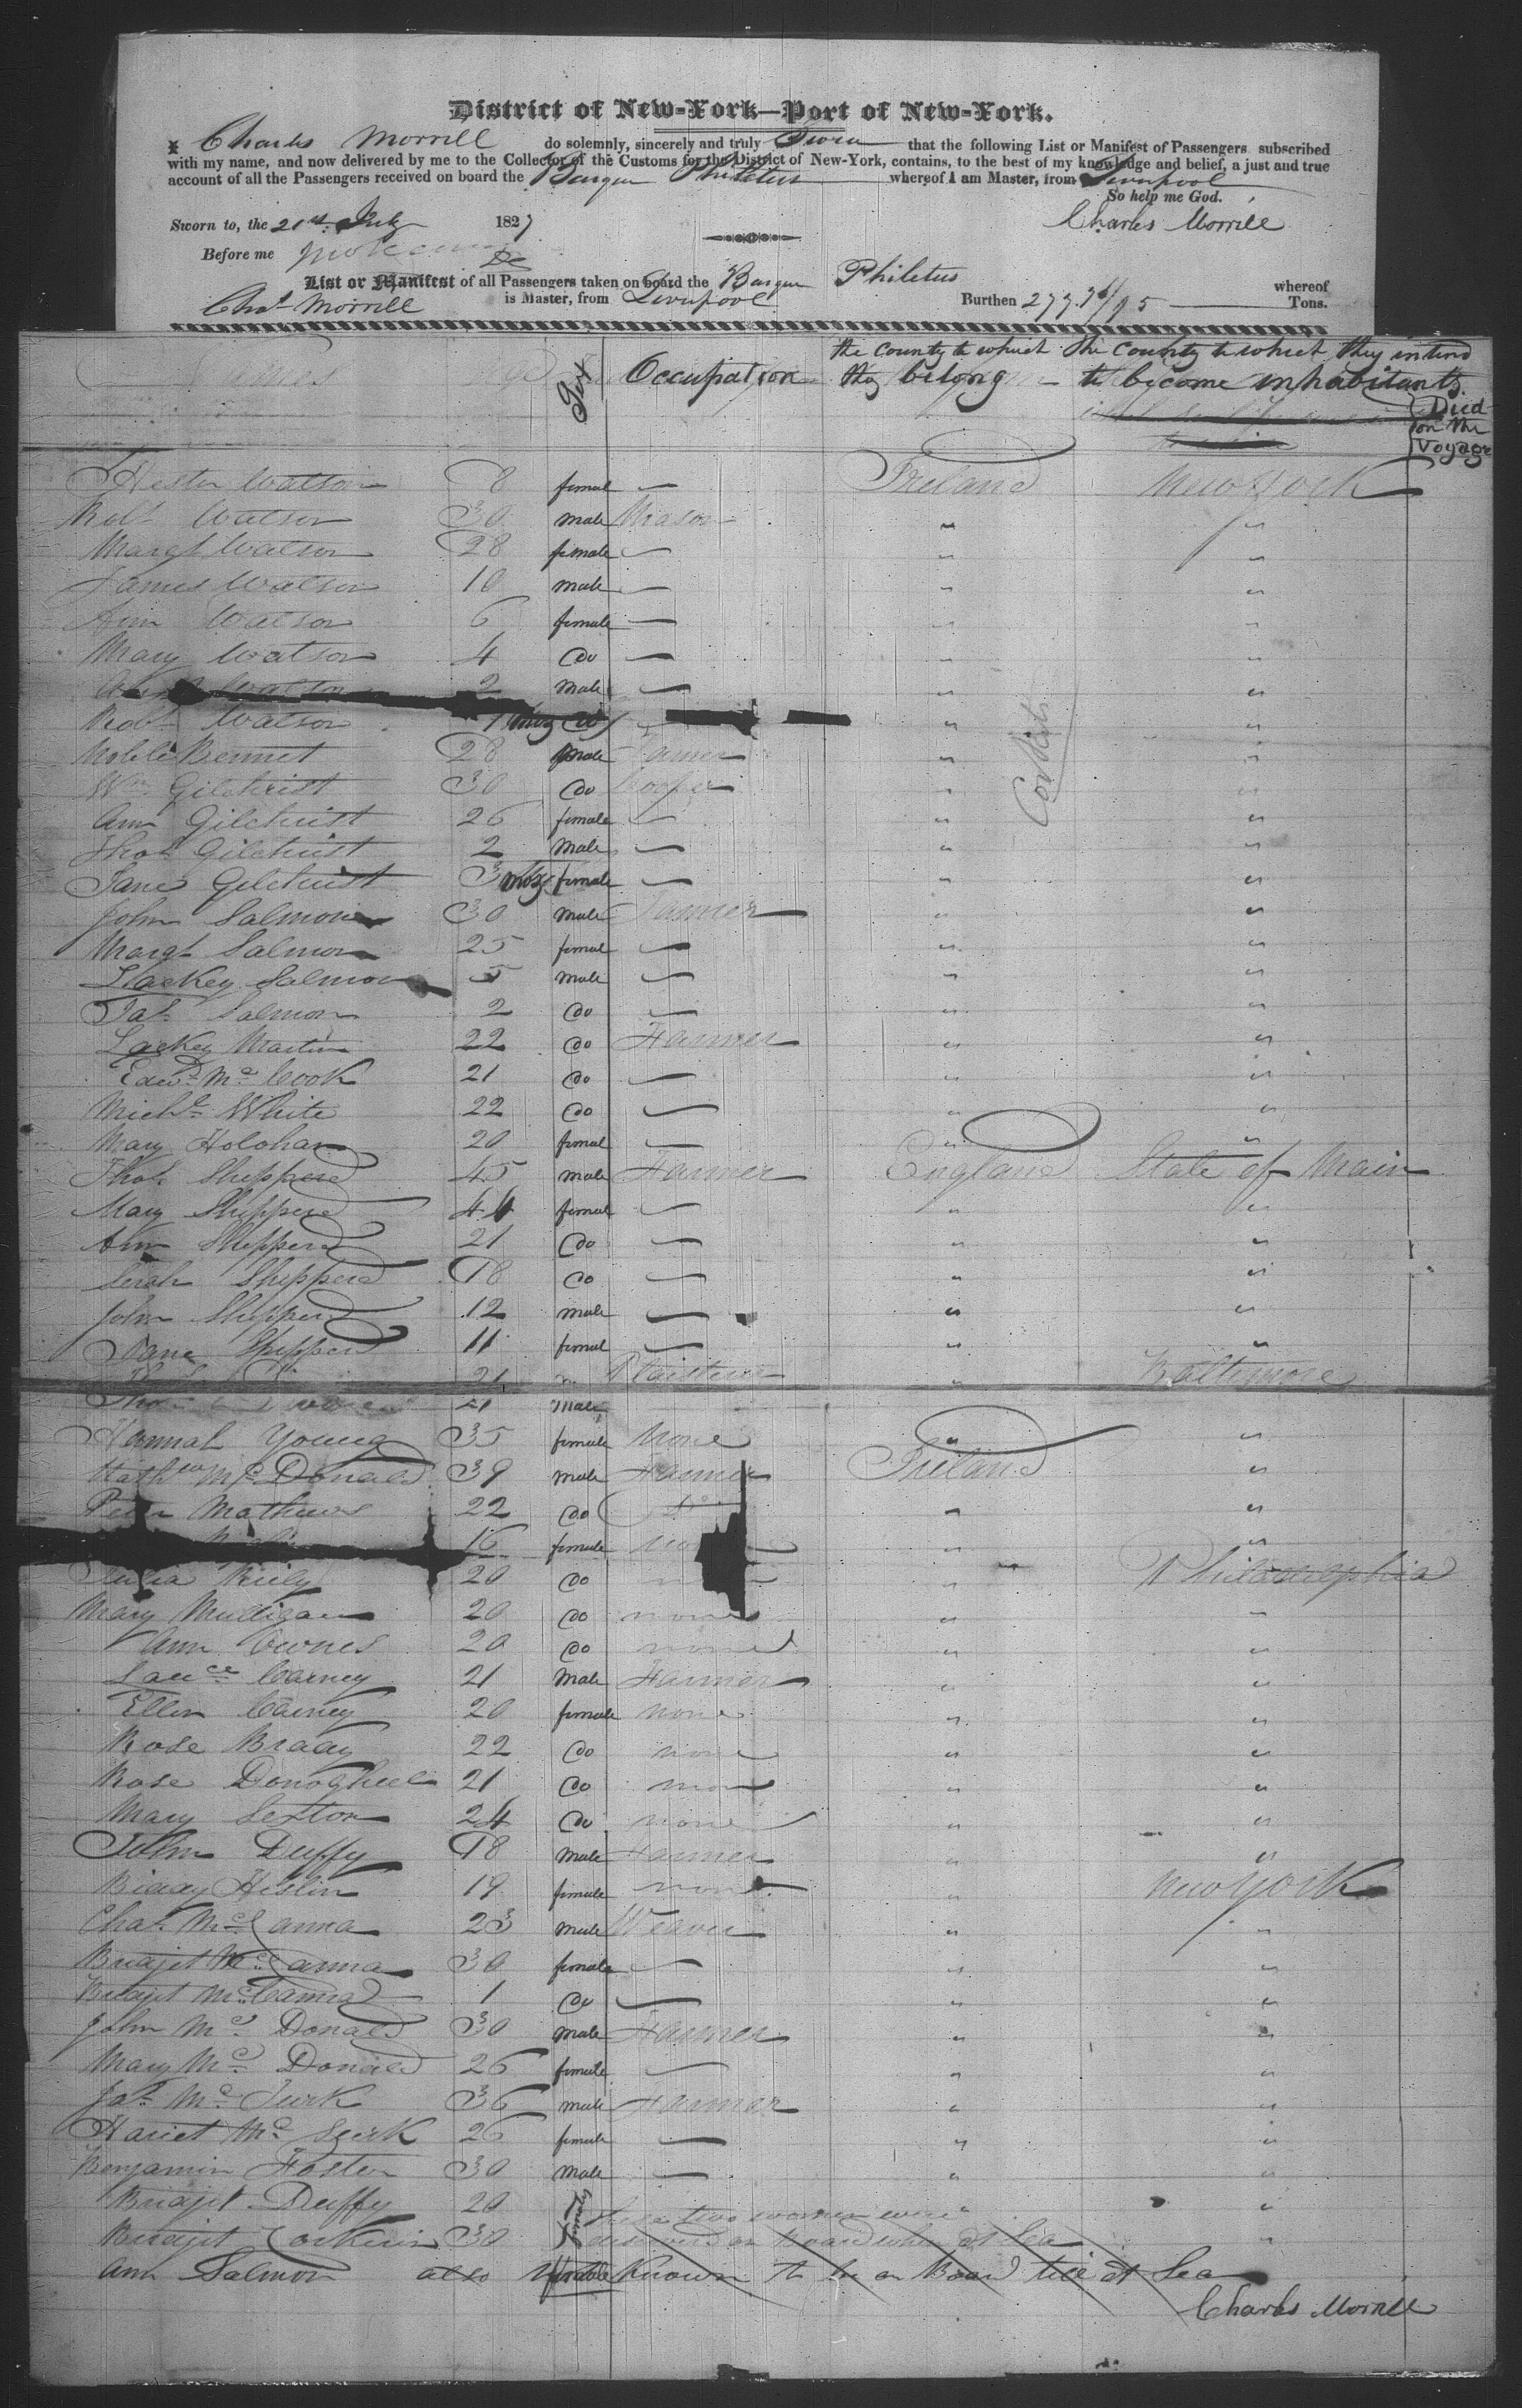 District of New-York—Port of New-York.
I Charles Morrill do solemnly, sincerely and truly Swear that the following List or Manifest of Passengers subscribed
with my name, and now delivered by me to the Collector of the Customs for the District of New-York, contains, to the best of my knowledge and belief, a just and true
account of all the Passengers received on board the Barque Philetus whereof I am Master, from Liverpool
So help me God.
Sworn to, the 21st July 1827 Charles Morrill
Before me
List or Manifest of all Passengers taken on board the Barque Philetus whereof
Chas Morrill is Master, from Liverpool Burthen 277 76/95 Tons.
Names Sex Occupation the County to which they belong the County to which they intend to become inhabitants Died on the Voyage
Hester Watson 8 femal Ireland New York
Robt Watson 30 male Mason " "
Margt Watson 28 female " "
James Watson 10 male " "
Ann Watson 6 female " "
Mary Watson 4 Do " "
Watson 2 male " "
Robt Watson " "
Noble Bennet 28 male Farmer " "
Wm Gilchrist 30 Do Cooper " "
Ann Gilchrist 26 female " "
Thos Gilchrist 2 male " "
Jane Gilchrist 3 mos female " "
John Salmon 30 male Farmer " "
Margt Salmon 25 femal " "
Lackey Salmon 5 male " "
Jas Salmon 2 Do " "
Lackey Martin 22 Do Farmer " "
Edwd Mc Cook 21 Do " "
Michl White 22 Do " "
Mary Holohan 20 femal " "
Thos Shepperd 45 male Farmer England State of Main
Mary Shepperd 44 femal " "
Ann Shepperd 21 Do " "
Serah Shepperd 18 Do " "
John Shepperd 12 male " "
Jane Shepperd 11 femal " "
21 " Baltimore
Tho 21 male
Hannah Young 35 female None " "
Mc Donald 39 male Farmer Ireland "
Peter Mathews 22 Do Do " "
16 female " "
Julia Riely 20 Do " Philadelphia
Mary Mulligan 20 Do none " "
Ann Ownes 20 Do none " "
Lauce Carney 21 male Farmer " "
Ellen Carney 20 female none " "
Rose Brady 22 Do none " "
Rose Donoghue 21 Do none " "
Mary Sexton 24 Do none " "
John Duffy 18 male Farmer " "
Biddy Heslin 19 female none " New York
Chas McCanna 23 male Weaver " "
Bridjet McCanna 30 female " "
Bridjet McCanna 1 Do " "
John Mc Donald 30 male Farmer " "
Mary Mc Donald 26 female " "
Jas Mc Turk 36 male Farmer " "
Hariet Mc 26 female " "
Benjamin Foster 30 male " "
Bridjet Duffy 20 these two women were "
Bridjet 30 discoverd on board when at Sea "
Ann Salmon also female Known to be on Board at Sea
Charles Morrill